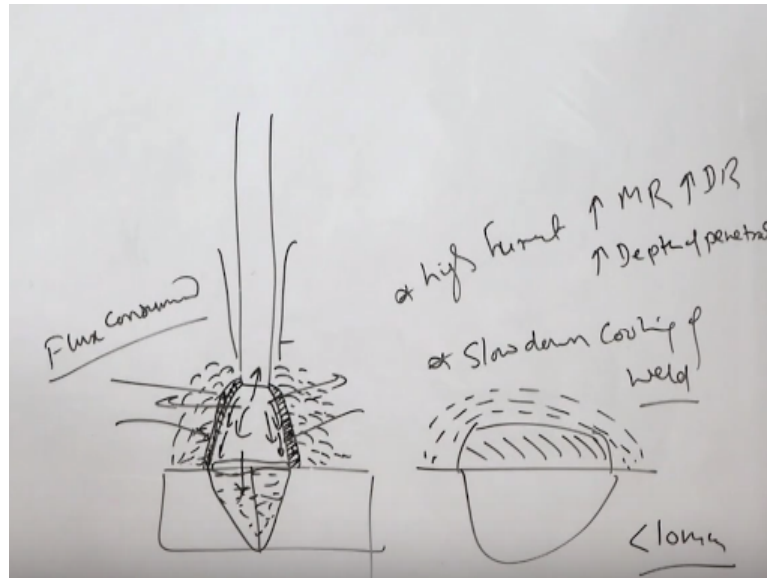 Flux consumed
* high Current ↑ MR ↑ DR
↑ Depth of penetra
* Slow down Cooling of
Weld